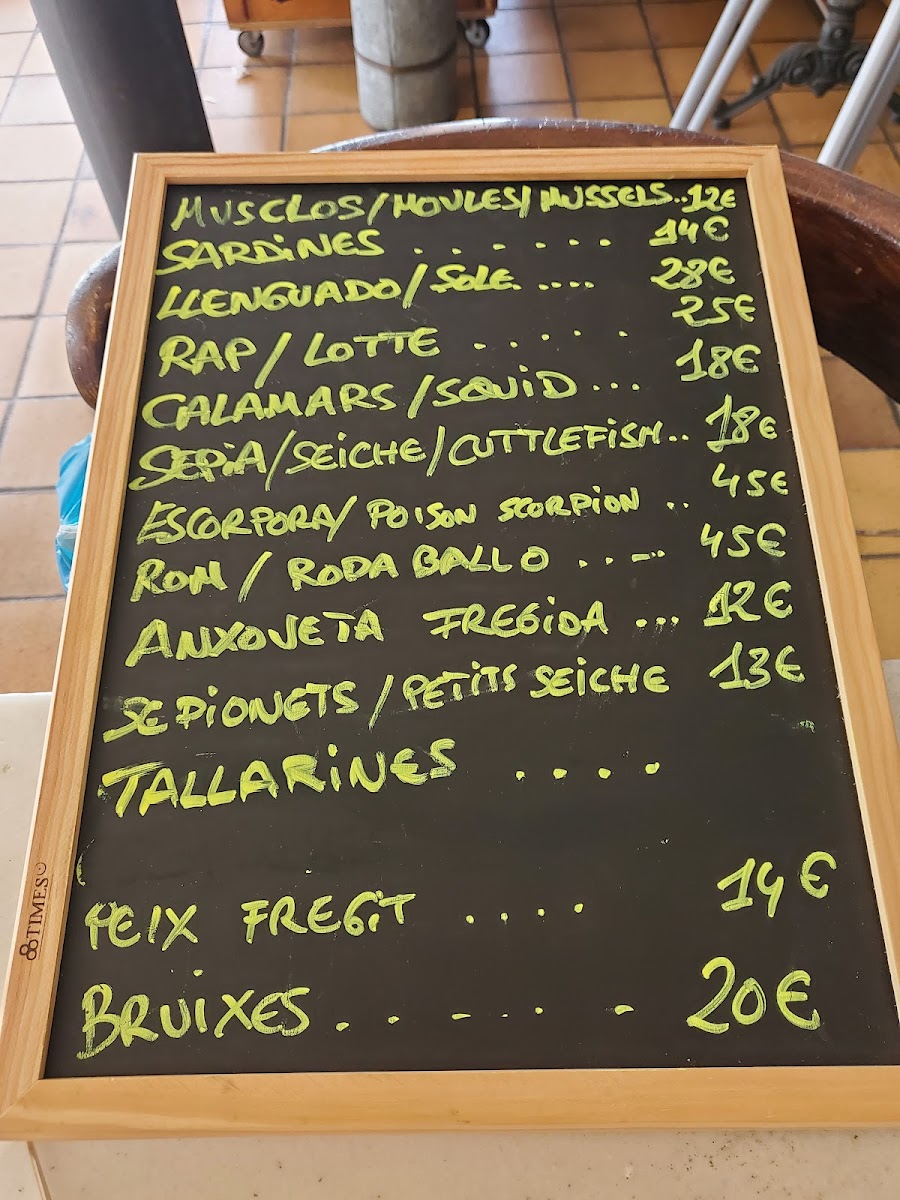 MUSCLOS/MOULES/MUSSELS..12€
SARDINES . . . . . . 14€
LLENGUADO/SOLE .... 28€
RAP/LOTTE . . . . . 25€
CALAMARS/SQUID... 18€
SEPIA/SEICHE/CUTTLEFISH.. 18€
ESCORPORA/POISON SCORPION .. 45€
ROM/RODABALLO ..-- 45€
ANXOVETA FREGIDA ... 12€
SEPIONETS/PETITS SEICHE 13€
TALLARINES . . . .
PEIX FREGIT .... 14€
BRUIXES. . - . - 20€
TIMES